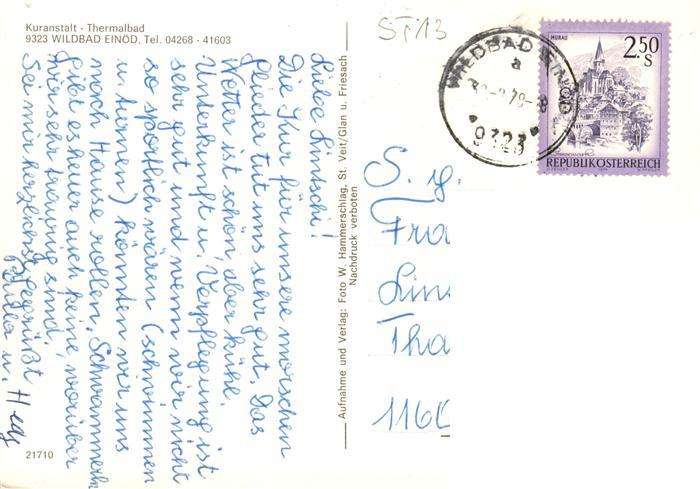 Kuranstalt - Thermalbad
9323 WILDBAD EINÖD, Tel. 04268 - 41603
Liebe Linschi!
Die Kur für unsere morschen
Glieder tut uns sehr gut. Das
Wetter ist schön, aber kühl.
Unterkunft u. Verpflegung ist
sehr gut und wenn wir nicht
so sportlich wären (schwimmen
u. turnen) könnten wir uns
nach Hause rollen. Schwammerln
gibt es heuer auch keine, worüber
wir sehr traurig sind.
Sei mir herzlichst gegrüßt
u.
21710
Aufnahme und Verlag: Foto W. Hammerschlag, St. Veit/Glan u. Friesach
Nachdruck verboten
ST13
WILDBAD EINÖD
a
79-8
9323
MURAU
2.50
S
REPUBLIK ÖSTERREICH
S. g.
Fra
Lin
Tha
1160